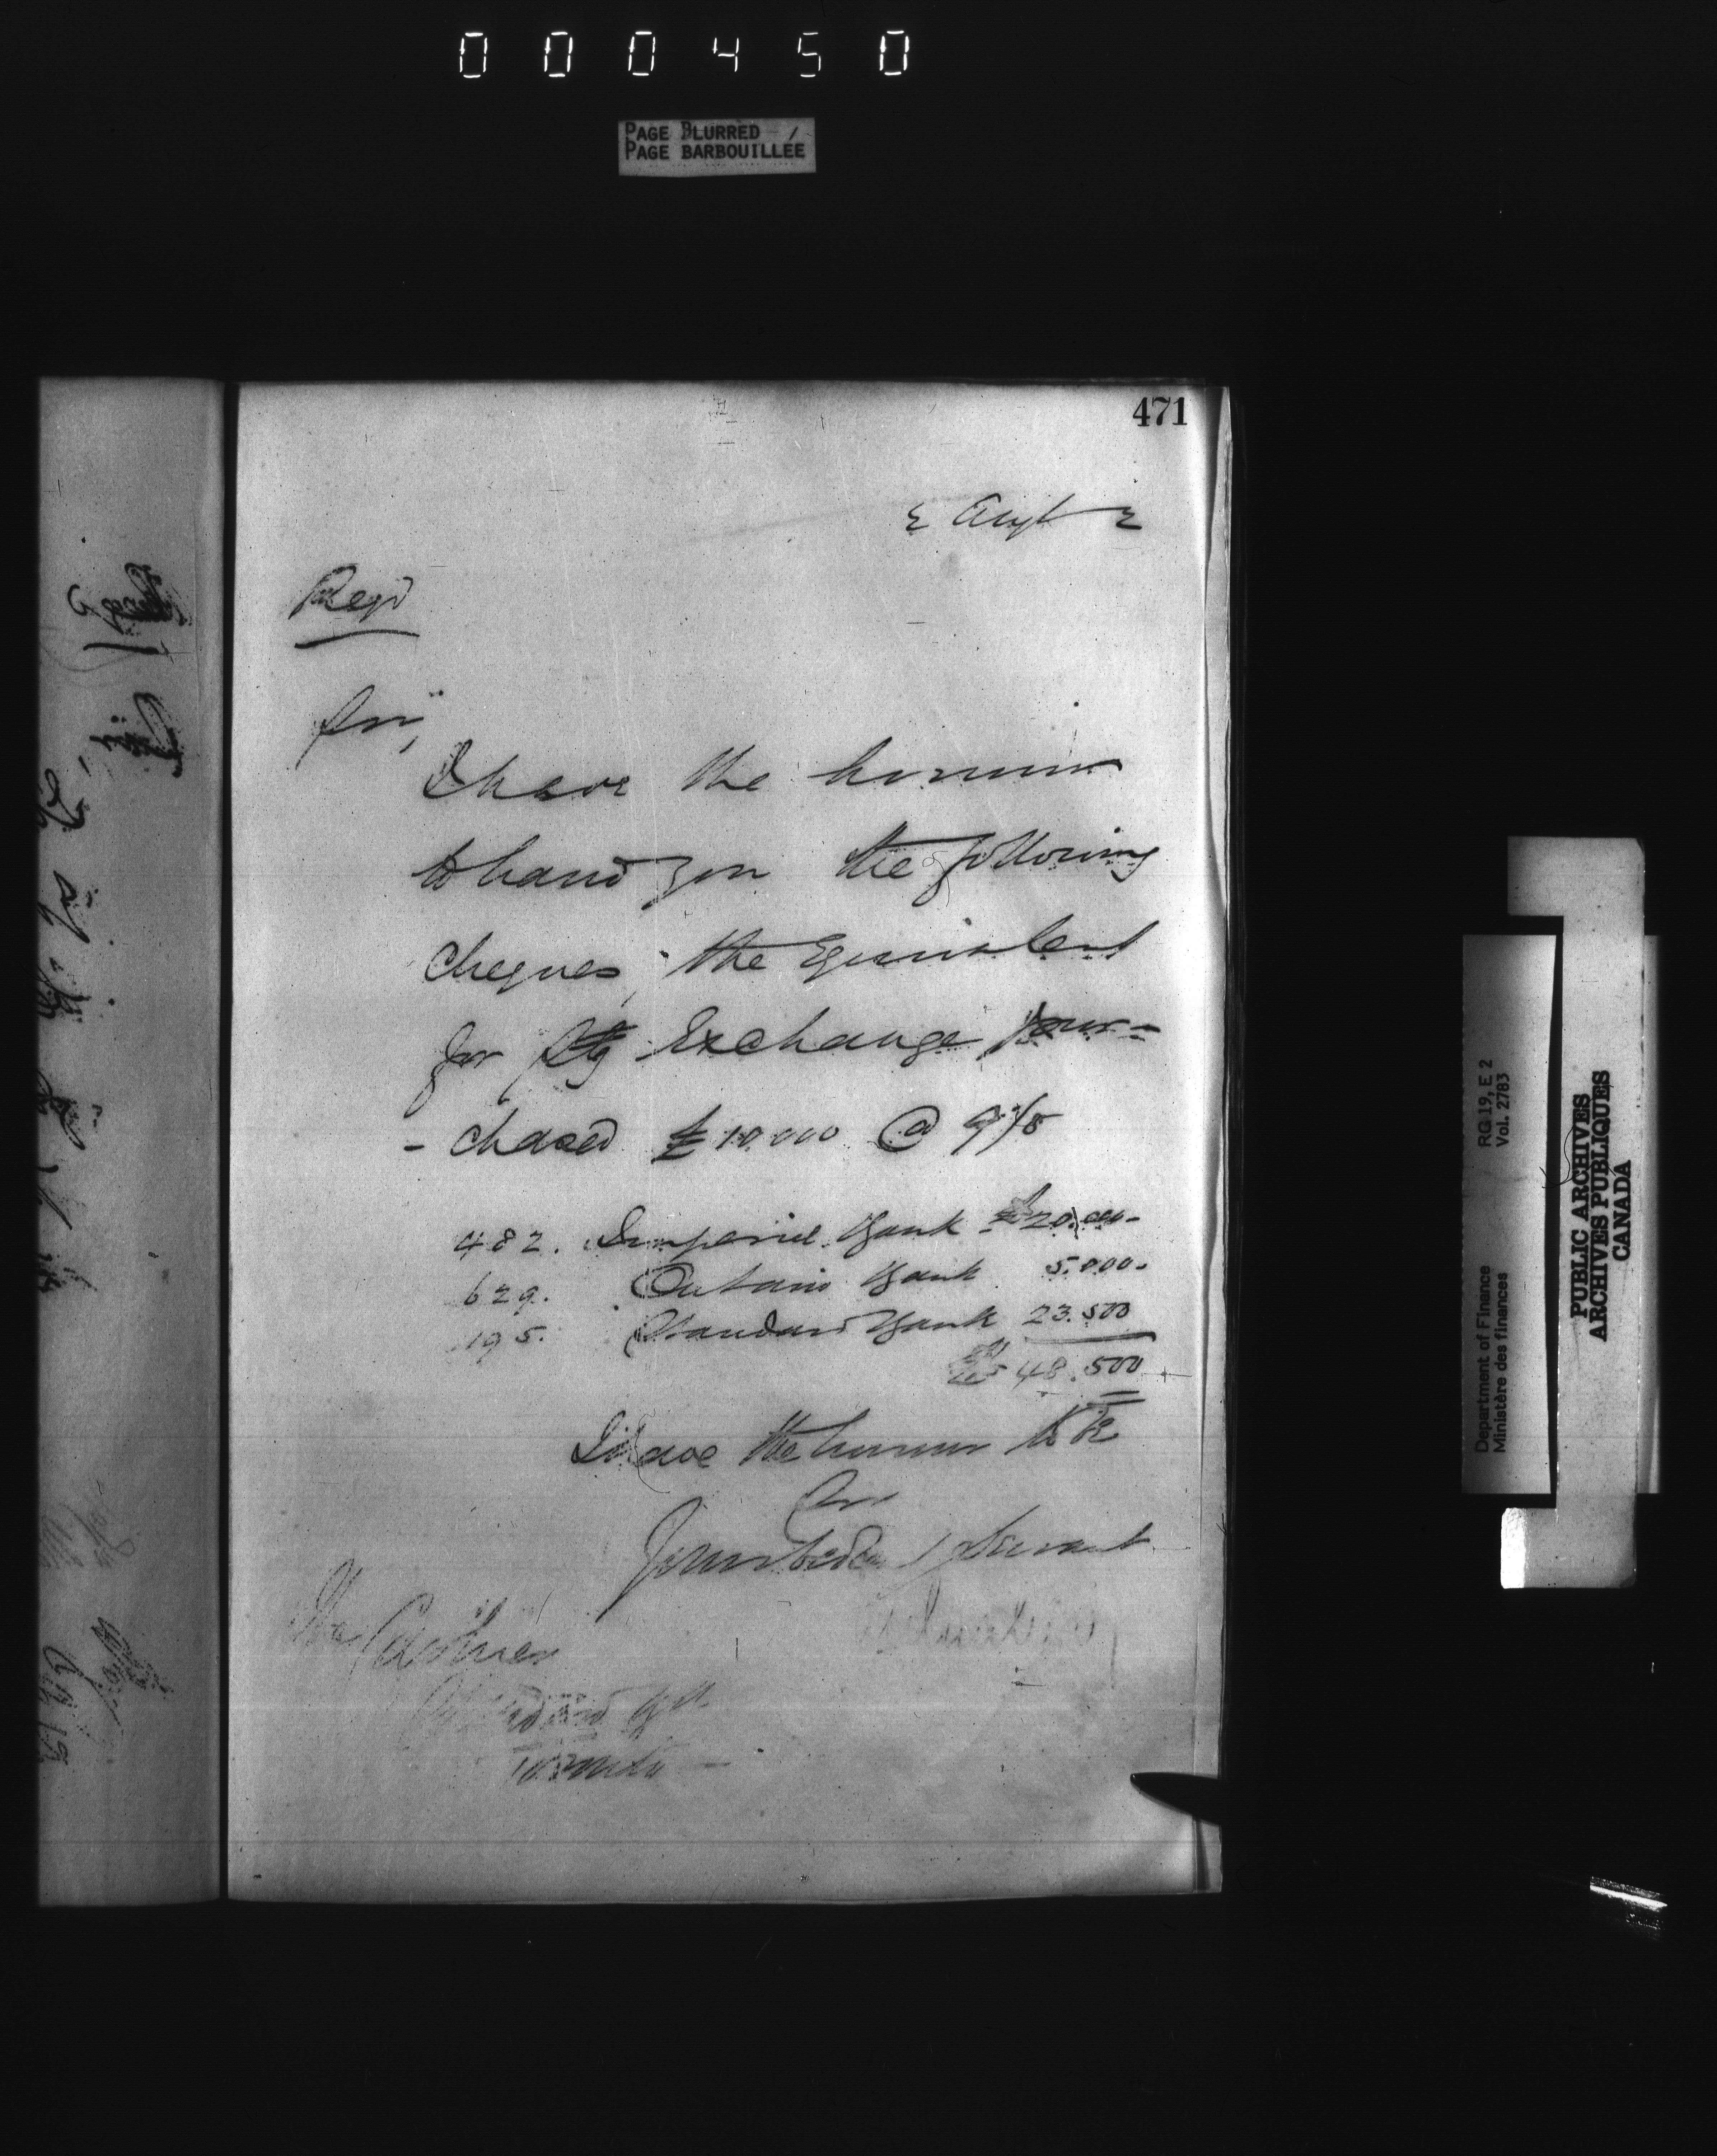 000450
PAGE BLURRED
PAGE BARBOUILLÉE
471
2 Augt 2
Regd
Sir,
I have the honour
to hand you the following
cheques, the Equivalent
for Stg Exchange pur-
- chased £10.000 @ 9 1/8
482. Imperial Bank $20,000-
629. Ontario Bank 5.000-
195. Standard Bank 23.500
$48.500
I have the honour to be
Sir
Your obedient Servant
The Cashier
Standard Bk
Toronto
Department of Finance RG 19, E 2
Ministère des finances Vol. 2783
PUBLIC ARCHIVES
ARCHIVES PUBLIQUES
CANADA